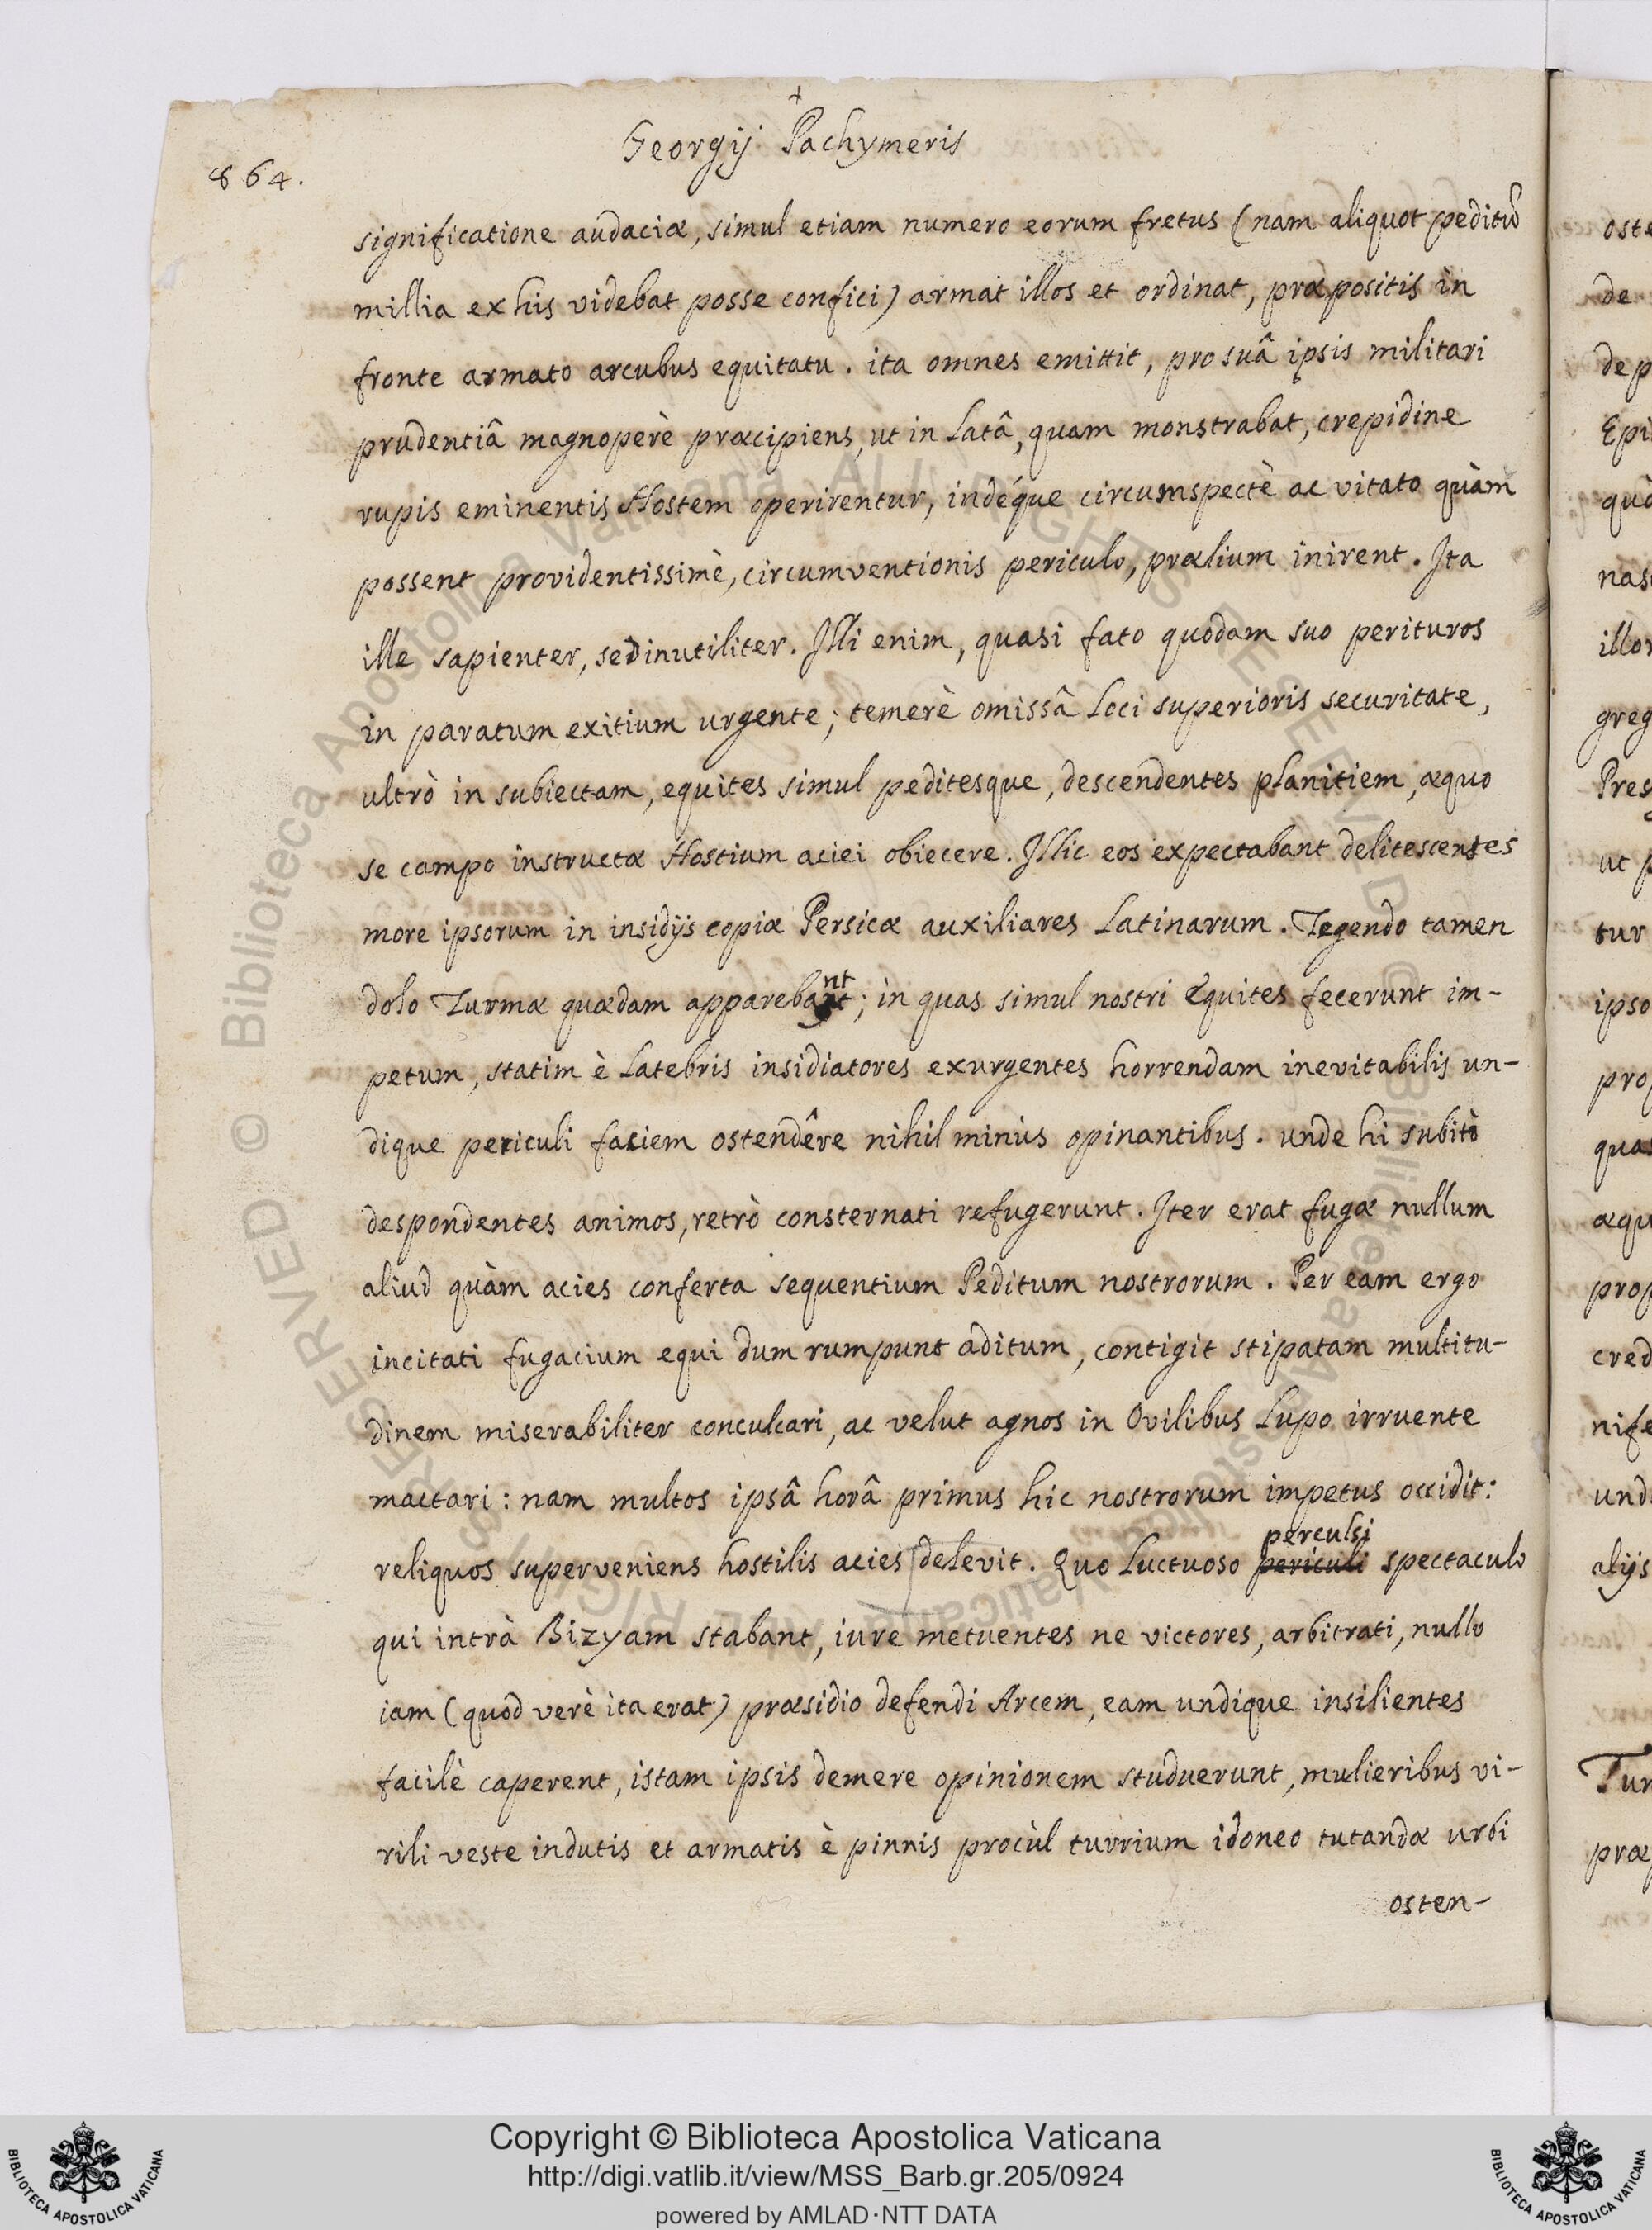 Georgij Pachymeris
864.
significatione audaciæ, simul etiam numero eorum fretus (nam aliquot peditũ
millia ex his videbat posse confici) armat illos et ordinat, præpositis in
fronte armato arcubus equitatu. ita omnes emittit, pro suâ ipsis militari
prudentiâ magnoperè præcipiens, ut in latâ, quam monstrabat, crepidine
rupis eminentis Hostem operirentur, indéque circumspectè ac vitato quàm
possent providentissimè, circumventionis periculo, prælium inirent. Ita
ille sapienter, sed inutiliter. Illi enim, quasi fato quodam suo perituros
in paratum exitium urgente; temerè omissâ loci superioris securitate,
ultrò in subiectam, equites simul peditesque, descendentes planitiem, æquo
se campo instructæ Hostium aciei obiecere. Illic eos expectabant delitescentes
more ipsorum in insidijs copiæ Persicæ auxiliares Latinarum. Tegendo tamen
dolo Turmæ quædam apparebant; in quas simul nostri Equites fecerunt im-
petum, statim è latebris insidiatores exurgentes horrendam inevitabilis un-
dique periculi faciem ostendêre nihil minùs opinantibus. unde hi subitò
despondentes animos, retrò consternati refugerunt. Iter erat fugæ nullum
aliud quàm acies conferta sequentium Peditum nostrorum. Per eam ergo
incitati fugacium equi dum rumpunt aditum, contigit stipatam multitu-
dinem miserabiliter conculcari, ac velut agnos in Ovilibus Lupo irruente
mactari: nam multos ipsâ horâ primus hic nostrorum impetus occidit:
perculsi
reliquos superveniens hostilis acies delevit. Quo luctuoso periculi spectaculo
qui intrà Bizyam stabant, iure metuentes ne victores, arbitrati, nullo
iam (quod verè ita erat) præsidio defendi Arcem, eam undique insilientes
facilè caperent, istam ipsis demere opinionem studuerunt, mulieribus vi-
rili veste indutis et armatis è pinnis procùl turrium idoneo tutandæ urbi
osten-
oste
de
de p
Epi
quò
nas
illor
greg
Pres
ut p
tur
ipso
prop
quas
æqu
prop
cred
nife
und
alijs
Tur
præ
© Biblioteca Apostolica Vaticana ALL RIGHTS RESERVED
© Biblioteca Apostolica Vaticana ALL RIGHTS RESERVED
Copyright © Biblioteca Apostolica Vaticana
http://digi.vatlib.it/view/MSS_Barb.gr.205/0924
powered by AMLAD·NTT DATA
BIBLIOTECA APOSTOLICA VATICANA
BIBLIOTECA APOSTOLICA VATICANA